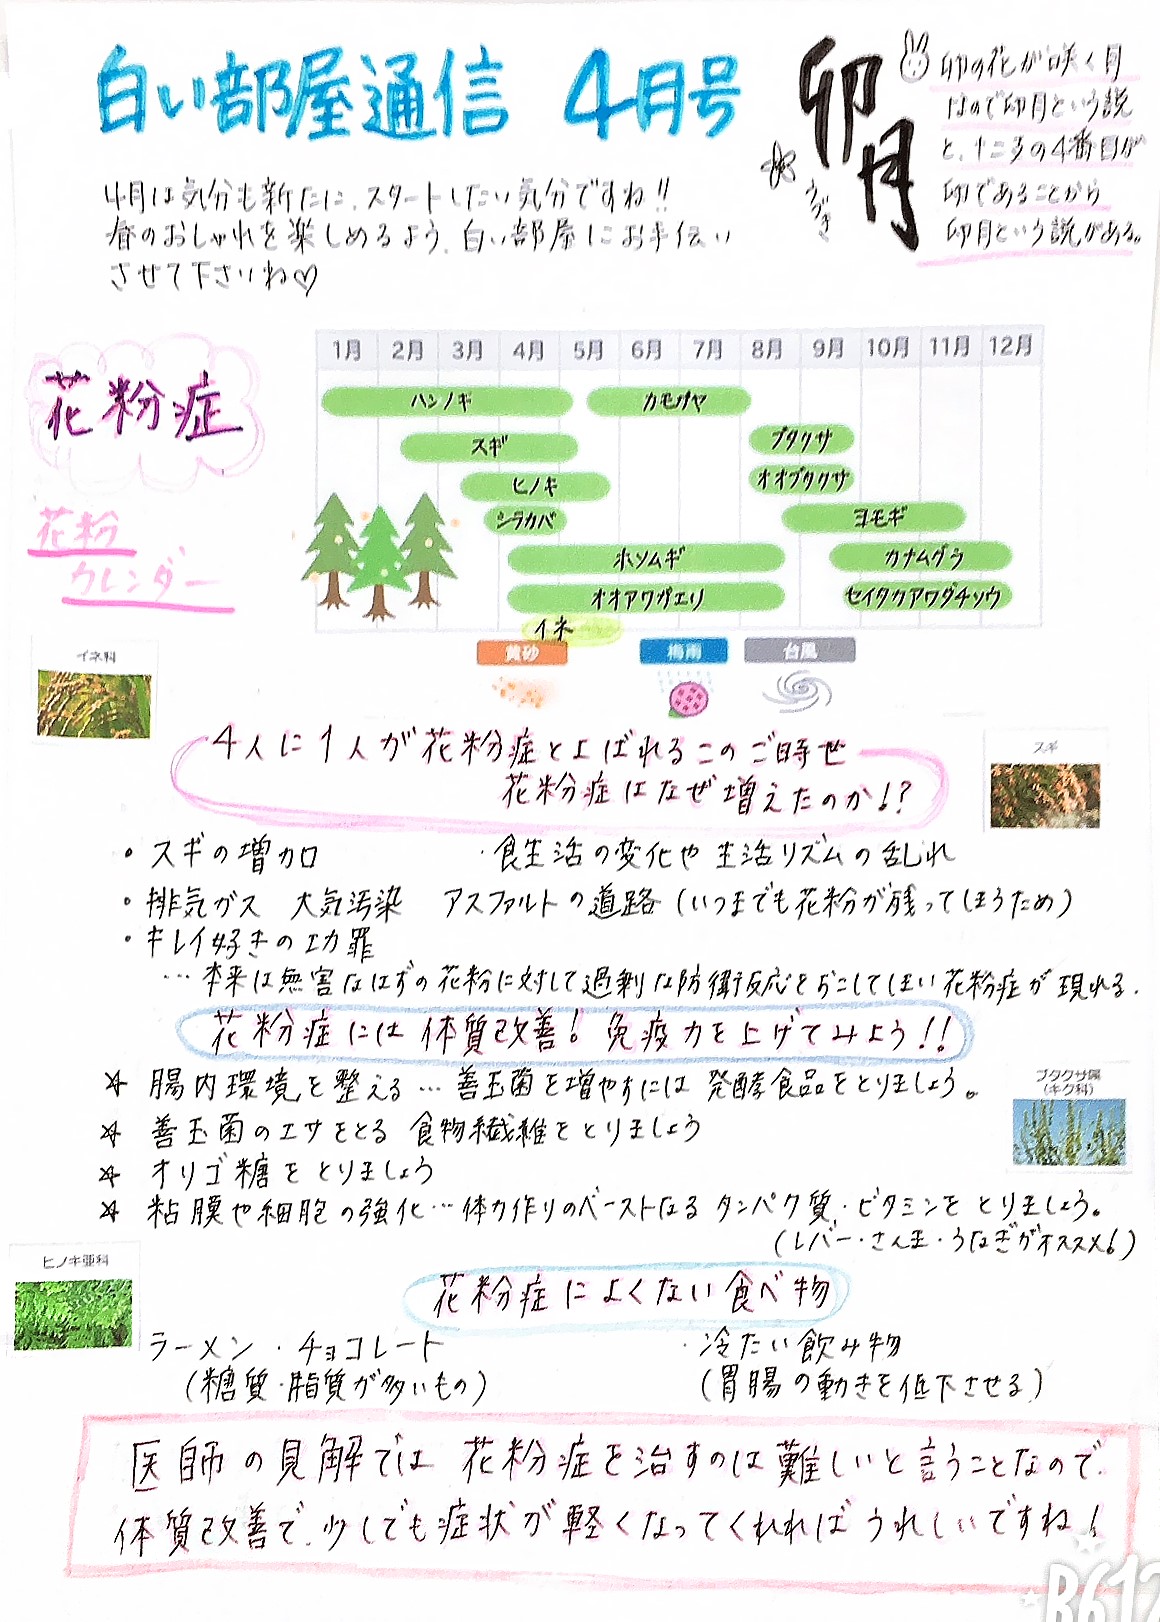 白い部屋通信 4月号
卯月
うづき
卯の花が咲く月
なので卯月という説
と、十二支の4番目が
卯であることから
卯月という説がある。
4月は気分も新たに、スタートしたい気分ですね!!
春のおしゃれを楽しめるよう、白い部屋にお手伝い
させて下さいね♡
花粉症
花粉
カレンダー
1月 2月 3月 4月 5月 6月 7月 8月 9月 10月 11月 12月
ハンノキ カモガヤ
スギ ブタクサ
ヒノキ オオブタクサ
シラカバ ヨモギ
ホソムギ カナムグラ
オオアワガエリ セイタカアワダチソウ
イネ
黄砂 梅雨 台風
イネ科
4人に1人が花粉症とよばれるこのご時世
花粉症はなぜ増えたのか!?
スギ
・スギの増加 ・食生活の変化や生活リズムの乱れ
・排気ガス 大気汚染 アスファルトの道路(いつまでも花粉が残ってしまうため)
・キレイ好きの功罪
…本来は無害なはずの花粉に対して過剰な防衛反応をおこしてしまい花粉症が現れる.
花粉症には体質改善! 免疫力を上げてみよう!!
☆ 腸内環境を整える… 善玉菌を増やすには 発酵食品をとりましょう。
☆ 善玉菌のエサをとる 食物繊維をとりましょう
☆ オリゴ糖をとりましょう
☆ 粘膜や細胞の強化…体力作りのベースとなる タンパク質・ビタミンをとりましょう。
(レバー・さんま・うなぎがオススメ!)
ブタクサ属
(キク科)
ヒノキ亜科
花粉症によくない食べ物
ラーメン ・ チョコレート ・冷たい飲み物
(糖質・脂質が多いもの) (胃腸の動きを低下させる)
医師の見解では 花粉症を治すのは難しいと言うことなので、
体質改善で、少しでも症状が軽くなってくれればうれしいですね!
B612